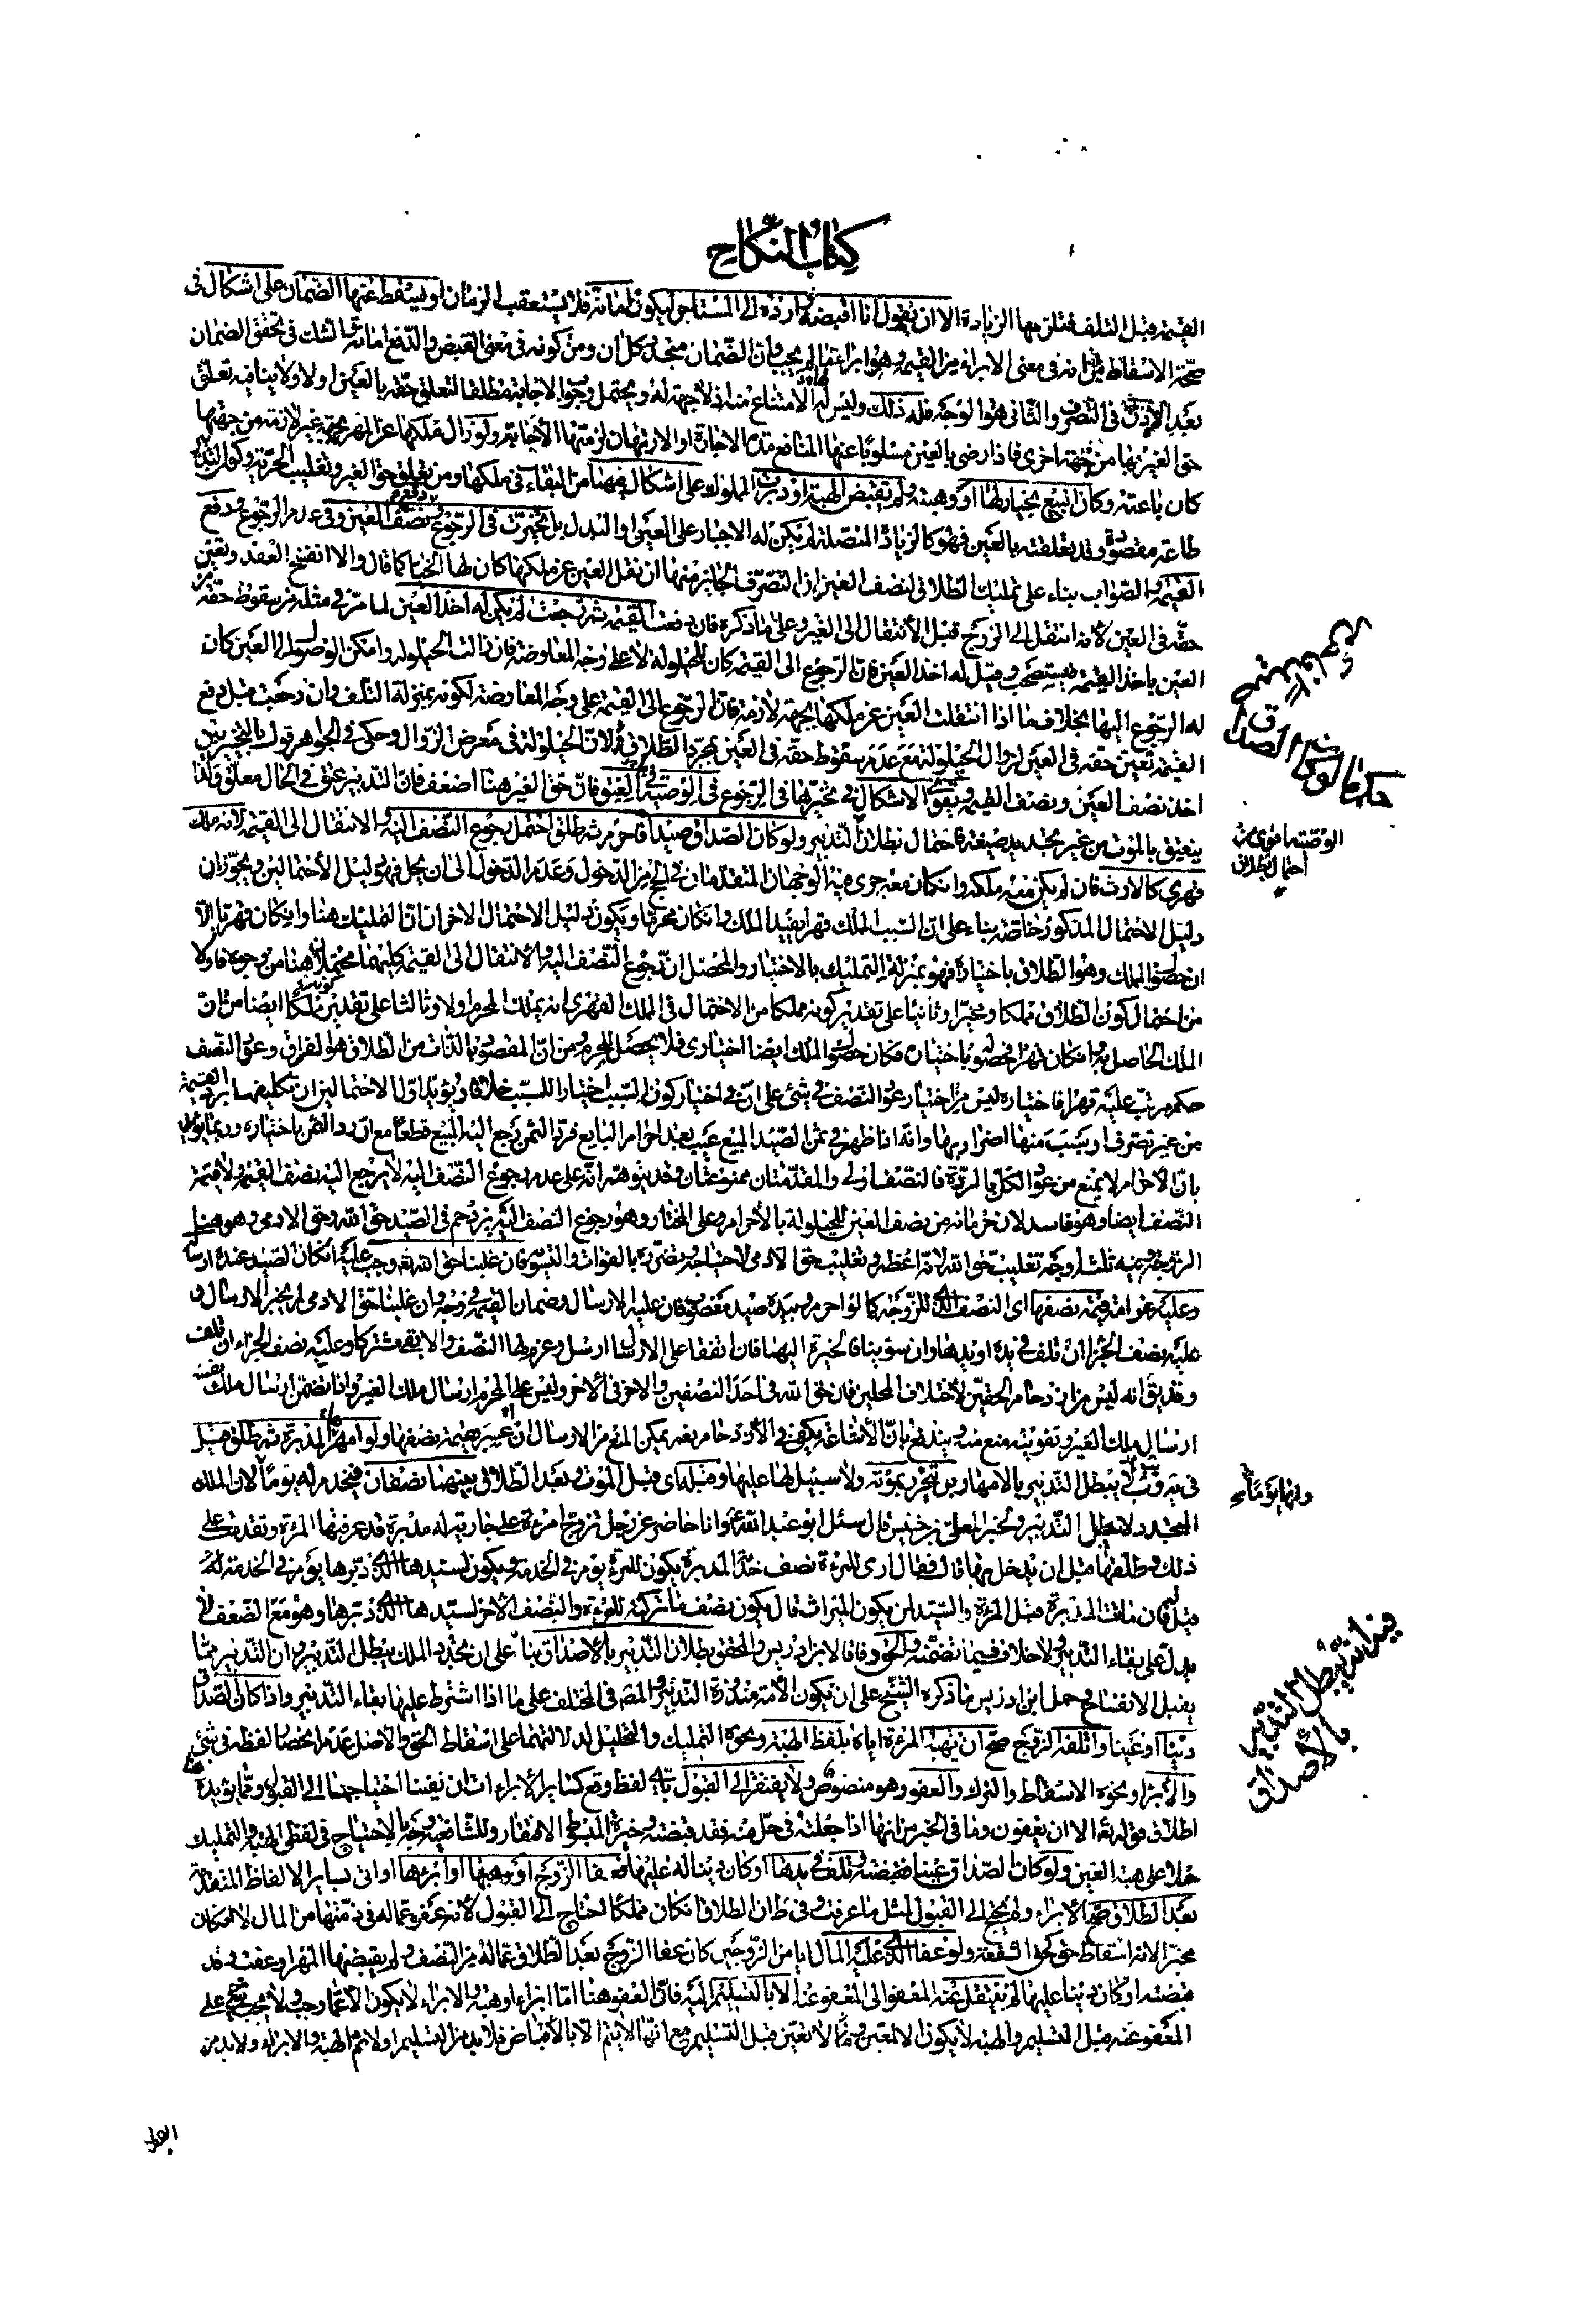 كتاب النكاح
القيمة قبل التلف فتلزمها الزيادة الا ان يقول انا اقبضه وارده الى المستاجر ليكون امانة فلا يستعقب الزمان او يسقط عنها الضمان على اشكال في
صحة الاسقاط من انه في معنى الابراء من القيمة وهو ابراء عما لم يجب وان الضمان متجدد كل ان ومن كونه في معنى القبض والدفع امانة والشك في تحقق الضمان
بعد الاذن في التصرف والثاني هو الوجه فله ذلك وليس لها الامتناع منه اذ لا جهة له ويحتمل وجوب الاجابة مطلقا لتعلق حقه بالعين اولا ولا ينافيه تعلق
حق الغير بها من جهة اخرى فاذا رضي بالعين مسلوبا عنها المنافع مدة الاجارة او الارتهان لزمتها الاجابة ولو زال ملكها عن المهر بجهة غير لازمة من جهتها
كان باعته وكان البيع بخيار لها او وهبته ولم تقبض الهبة او دبرت المملوك على اشكال فيهنا من البقاء في ملكها ومن تعلق حق الغير وتغليب الحرية وكون التدبير
طاعة مقصودة وقد تعلقت بالعين فهو كالزيادة المتصلة لم يكن له الاجبار على العين او البدل بل تخيرت في الرجوع ودفع نصف العين وفي عدم الرجوع ودفع
القيمة والصواب بناء على تمليك الطلاق لنصف العين اذا التصرف الجائز منها ان نقل العين عن ملكها كان لها الخيار كما قال والا انفسخ العقد وتعين
حقه في العين لانه انتقل الى الزوج قبل الانتقال الى الغير وعلى ما ذكره فان دفعت القيمة ثم رجعت لم يكن له اخذ العين لما مر في مثله من سقوط حقه من
العين باخذ القيمة فيستصحب وقيل له اخذ العين فان الرجوع الى القيمة كان للحيلولة لا على وجه المعاوضة فان زالت الحيلولة وامكن الوصول الى العين كان
له الرجوع اليها بخلاف ما اذا انتقلت العين عن ملكها بجهة لازمة فان الرجوع الى القيمة على وجه المعاوضة لكونه بمنزلة التلف وان رجعت قبل دفع
القيمة تعين حقه في العين لزوال الحيلولة مع عدم سقوط حقه في العين بمجرد الطلاق لان الحيلولة في معرض الزوال وحكى في الجواهر قول بالتخيير بين
اخذ نصف العين ونصف القيمة ويقوى الاشكال في تخيرها في الرجوع في الوصية بالعتق فان حق الغير هنا اضعف فان التدبير عتق في الحال معلق ولذا
ينعتق بالموت من غير تجديد صيغة فاحتمال بطلان التدبير ولو كان الصداق صيدا فاحرم ثم طلق احتمل رجوع النصف اليه والانتقال الى القيمة لانه ملك
قهري كالارث فان لم يكن معه ملكه وان كان معه جرى فيه الوجهان المتقدمان في الحج من الدخول وعدم الدخول الى ان يحل فهو لبيل الاحتمالين ويجوز ان
دليل الاحتمال المذكور خاصة بناء على ان السبب المملك قهرا يفيد الملك وان كان محرما ويكون دليل الاحتمال الاخر ان التمليك هنا وان كان قهريا الا
ان حصول الملك وهو الطلاق باختياره فهو بمنزلة التمليك بالاختيار والمحصل ان رجوع النصف اليه والانتقال الى القيمة كليهما محتملان هنا من وجوه فاولا
من احتمال كون الطلاق مملكا ومخيرا وثانيا على تقدير كونه مملكا من الاحتمال في الملك القهري انه يملك المحرم اولا وثالثا على تقدير كونه مملكا ايضا من ان
الملك الحاصل به وان كان قهرا فحصوله باختياره فكان حصول الملك ايضا اختياري فلا يحصل للمحرم ومن ان المقصود بالذات من الطلاق هو الفراق وعود النصف
حكم مرتب عليه قهرا فاختياره ليس من اختيار عود النصف في شيء على ان في اختيار كون السبب اختيارا للمسبب خلافا ويؤيد اول الاحتمالين ان تكليفها بالقيمة
من غير تصرف او سبب منها اضرار بها وانه اذا ظهر في ثمن الصيد المبيع عيب بعد احرام البايع فرد الثمن رجع اليه المبيع قطعا مع ان رد الثمن باختياره وربما يؤيد
بان الاحرام لا يمنع من عود الكل بالردة فالنصف اولى والمقدمتان ممنوعتان وقد يتوهم انه على عدم رجوع النصف اليه لا يرجع اليه نصف القيمة ولا قيمة
النصف ايضا وهو فاسد لان حرمانه من نصف العين للحيلولة بالاحرام وعلى المختار وهو رجوع النصف اليه يزدحم في الصيد حق الله وحق الادمي وهو هنا
الزوجة وفيه ثلثة اوجه تغليب حق الله لانه اعظم وتغليب حق الادمي لاحتياجه وتضرره بالفوات والتسوية فان غلبنا حق الله تعه وجب عليه ان كان الصيد عنده ارساله
وعليه غرامة قيمة نصفها اي النصف الذي للزوجة كما لو احرم وبيده صيد مغصوب فان عليه الارسال وضمان القيمة في وجه وان غلبنا حق الادمي لم يجز الارسال و
عليه نصف الجزاء ان تلف في يده او يدها وان سوينا فالخيرة اليهما فان اتفقا على الارسال ارسل وغرم لها النصف والا بقي مشتركا وعليه نصف الجزاء ان تلف
وقد يق انه ليس من ازدحام الحقين لاختلاف المحلين فان حق الله في احد النصفين والاخر في الاخر وليس على المحرم ارسال ملك الغير وانما تضمن ارسال ملك نفسه
ارسال ملك الغير وتفويته منع منه ويندفع بان الاشاعة يكفي في الازدحام نعم يمكن المنع من الارسال ان عسر قيمة نصفها ولو امهرها المدبرة ثم طلق قبل
في يه وب لا يبطل التدبير بالامهار وينجز بموته ولا سبيل لها عليها وقبله اي قبل الموت وبعد الطلاق بينهما نصفان فتخدم له يوما لان الملك
المتجدد لا يبطل التدبير ولخبر المعلى بن خنيس قال سئل ابو عبد الله ع وانا حاضر عن رجل تزوج امرءة على جارية له مدبرة قد عرفتها المرءة وتقدمت على
ذلك وطلقها قبل ان يدخل بها قال فقال ارى للمرءة نصف خدمة المدبرة يكون للمرءة يوم في الخدمة ويكون لسيدها الذي دبرها يوم في الخدمة له
قيل فان ماتت المدبرة قبل المرءة والسيد لمن يكون الميراث قال يكون نصف ما تركته للمرءة والنصف الاخر لسيدها الذي دبرها وهو مع الضعف لا
يدل على بقاء التدبير ولا خلاف فيما تضمنه والحق وفاقا لابن ادريس والمحقق بطلان التدبير بالاصداق بناء على ان تجديد الملك يبطل التدبير وان التدبير مما
يقبل الانفساخ وحمل ابن ادريس ما ذكره الشيخ على ان يكون الامة منذورة التدبير والمصه في المختلف على ما اذا اشترط عليها بقاء التدبير واذا كان الصداق
دينا او عينا واتلفه الزوج صح ان تهبه المرءة اياه بلفظ الهبة ونحوه التمليك والتحليل لدلالتهما على اسقاط الحق والاصل عدم انحصار اللفظ في شيء
والابراء ونحوه الاسقاط والترك والعفو وهو منصوص ولا يفتقر الى القبول باي لفظ وقع كساير الابراءات ان نفينا احتياجها الى القبول ومما يؤيده هنا
اطلاق قوله تعه الا ان يعفون وما في الخبر من انها اذا جعلته في حل منه فقد قبضته وخيرة المبسوط الافتقار وللشافعية وجه بالاحتياج في لفظي الهبة والتمليك
حملا على هبة العين ولو كان الصداق عينا فقبضته وتلف في يدها او كان دينا له عليها فعفا الزوج او وهبها او ابرءها او اتى بساير الالفاظ المتقدمة
بعد الطلاق صح الابراء ولم يحتج الى القبول لمثل ما عرفت وفي ط ان الطلاق ان كان مملكا احتاج الى القبول لانه عفو عما له في ذمتها من المال لا ان كان
مخيرا لانه اسقاط حق كحق الشفعة ولو عفا الذي عليه المال ايا من الزوجين كان عفا الزوج بعد الطلاق عما له من النصف ولم يقبضها المهر او عفت وقد
قبضته او كان دينا عليها لم ينتقل عنه المعفو الى المعفو عنه الا بالتسليم اليه فان العفو هنا اما ابراء او هبة والابراء لا يكون الا عما وجب ولا يجب شيء على
المعفو عنه قبل التسليم والهبة لا يكون الا لمعين وهنا لا تعين قبل التسليم مع انها لا يتم الا بالاقباض فلا بد من التسليم اولا ثم الهبة والابراء ولا بد من
حكم ما لو كان الصداق
الوصية ما قوى من
احتمال بطلان
ولها يوما صح
في ان يبطل التدبير
بالاصداق
العقد